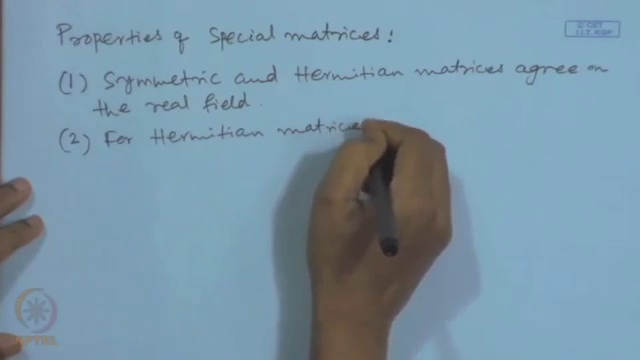 Properties of Special matrices:
© CET
I.I.T. KGP
(1) Symmetric and Hermitian matrices agree on
the real field.
(2) For Hermitian matrice
NPTEL